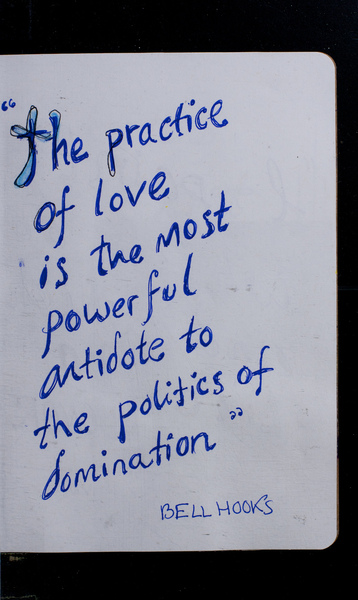 “The practice
of love
is the most
powerful
antidote to
the politics of
domination”
BELL HOOK'S